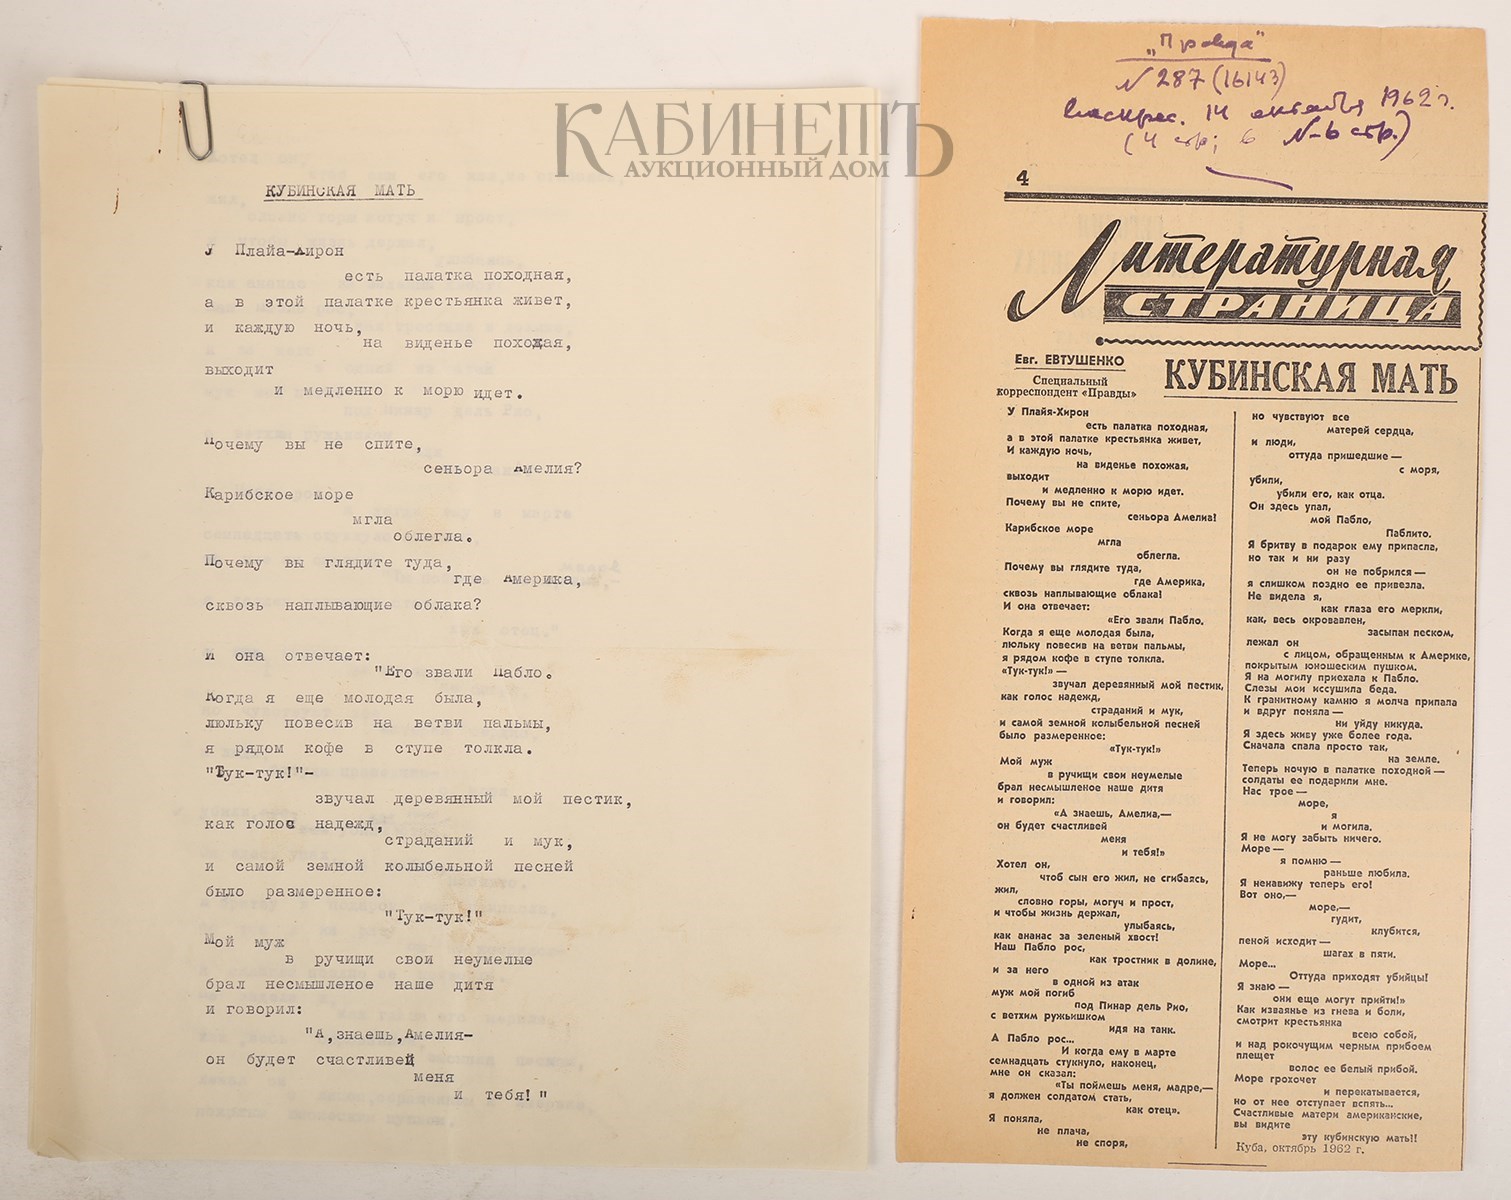 КАБИНЕТЪ
АУКЦИОННЫЙ ДОМ
КУБИНСКАЯ МАТЬ
У Плайа-Хирон
есть палатка походная,
а в этой палатке крестьянка живет,
и каждую ночь,
на виденье похожая,
выходит
и медленно к морю идет.
Почему вы не спите,
сеньора Амелия?
Карибское море
мгла
облегла.
Почему вы глядите туда,
где Америка,
сквозь наплывающие облака?
И она отвечает:
"Его звали Пабло.
Когда я еще молодая была,
люльку повесив на ветви пальмы,
я рядом кофе в ступе толкла.
"Тук-тук!"-
звучал деревянный мой пестик,
как голос надежд,
страданий и мук,
и самой земной колыбельной песней
было размеренное:
"Тук-тук!"
Мой муж
в ручищи свои неумелые
брал несмышленое наше дитя
и говорил:
"А,знаешь,Амелия-
он будет счастливей
меня
и тебя!"
„Правда"
N 287 (16143)
Воскрес. 14 октября 1962 г.
(4 стр; в N-6 стр.)
4
Литературная
СТРАНИЦА
Евг. ЕВТУШЕНКО
Специальный
корреспондент «Правды»
КУБИНСКАЯ МАТЬ
У Плайя-Хирон
есть палатка походная,
а в этой палатке крестьянка живет,
И каждую ночь,
на виденье похожая,
выходит
и медленно к морю идет.
Почему вы не спите,
сеньора Амелиа!
Карибское море
мгла
облегла.
Почему вы глядите туда,
где Америка,
сквозь наплывающие облака!
И она отвечает:
«Его звали Пабло.
Когда я еще молодая была,
люльку повесив на ветви пальмы,
я рядом кофе в ступе толкла.
«Тук-тук!» —
звучал деревянный мой пестик,
как голос надежд,
страданий и мук,
и самой земной колыбельной песней
было размеренное:
«Тук-тук!»
Мой муж
в ручищи свои неумелые
брал несмышленое наше дитя
и говорил:
«А знаешь, Амелиа,—
он будет счастливей
меня
и тебя!»
Хотел он,
чтоб сын его жил, не сгибаясь,
жил,
словно горы, могуч и прост,
и чтобы жизнь держал,
улыбаясь,
как ананас за зеленый хвост!
Наш Пабло рос,
как тростник в долине,
и за него
в одной из атак
муж мой погиб
под Пинар дель Рио,
с ветхим ружьишком
идя на танк.
А Пабло рос...
И когда ему в марте
семнадцать стукнуло, наконец,
мне он сказал:
«Ты поймешь меня, мадре,—
я должен солдатом стать,
как отец».
Я поняла,
не плача,
не споря,
но чувствуют все
матерей сердца,
и люди,
оттуда пришедшие —
с моря,
убили,
убили его, как отца.
Он здесь упал,
мой Пабло,
Паблито.
Я бритву в подарок ему припасла,
но так и ни разу
он не побрился —
я слишком поздно ее привезла.
Не видела я,
как глаза его меркли,
как, весь окровавлен,
засыпан песком,
лежал он
с лицом, обращенным к Америке,
покрытым юношеским пушком.
Я на могилу приехала к Пабло.
Слезы мои иссушила беда.
К гранитному камню я молча припала
и вдруг поняла —
ни уйду никуда.
Я здесь живу уже более года.
Сначала спала просто так,
на земле.
Теперь ночую в палатке походной —
солдаты ее подарили мне.
Нас трое —
море,
я
и могила.
Я не могу забыть ничего.
Море —
я помню —
раньше любила.
Я ненавижу теперь его!
Вот оно,—
море,—
гудит,
клубится,
пеной исходит —
шагах в пяти.
Море...
Оттуда приходят убийцы!
Я знаю —
они еще могут прийти!»
Как изваянье из гнева и боли,
смотрит крестьянка
всею собой,
и над рокочущим черным прибоем
плещет
волос ее белый прибой.
Море грохочет
и перекатывается,
но от нее отступает вспять...
Счастливые матери американские,
вы видите
эту кубинскую мать!!
Куба, октябрь 1962 г.